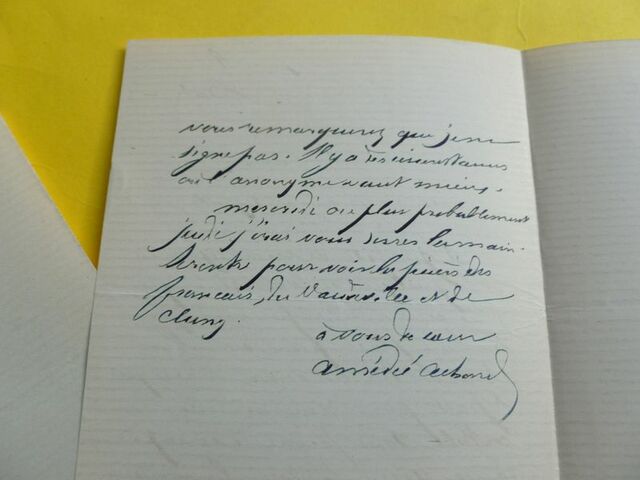 vous remarquerez que je ne
signe pas. Il y a des circonstances
où l'anonyme vaut mieux.
mercredi ou plus probablement
jeudi j'irai vous serrer la main.
pour voir les pièces des
français, du Vaudeville et de
Cluny.
à vous de cœur
Amédée Achard